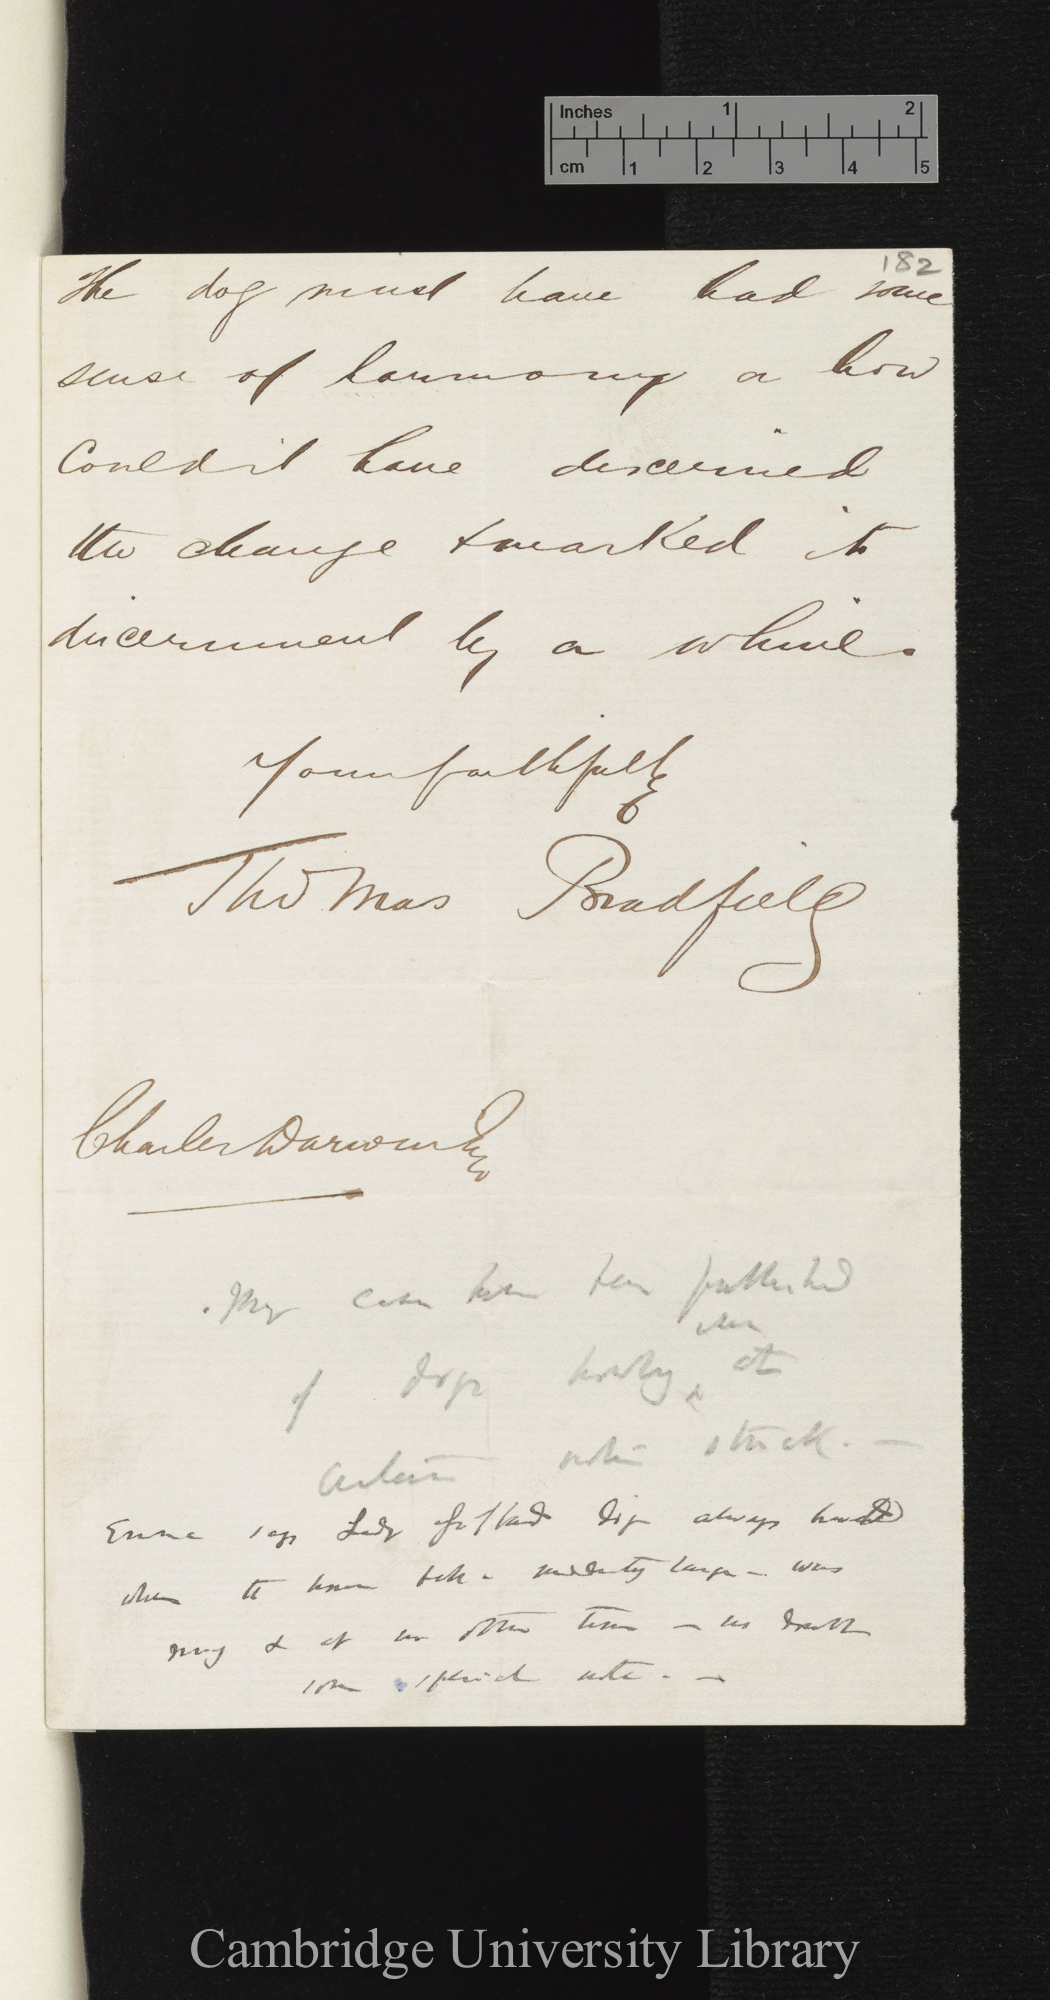 Inches 1 2
cm 1 2 3 4 5
182
The dog must have had some
sense of harmony or how
Could it have discerned
the change & marked its
discernment by a whine.
Yours faithfully
Thomas Bradfield
Charles Darwin Esq
. Many cases have been published
of dogs howling when
certain notes struck. —
Emma says Lady dogs always howled
when the was
rung & at no other time — no doubt
some special note. —
Cambridge University Library